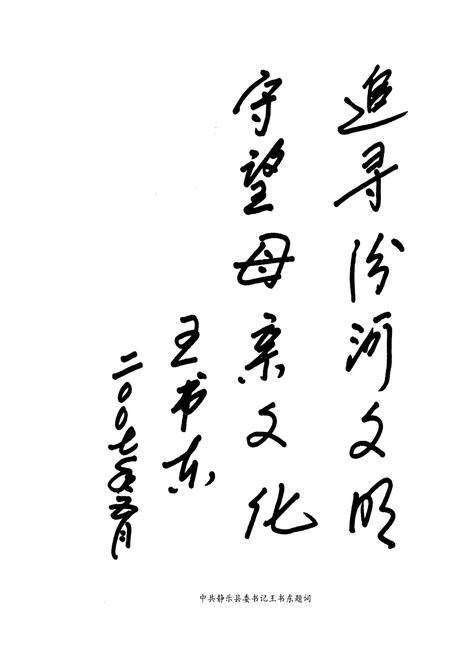 追寻汾河文明
守望母亲文化
王书东
二〇〇七年五月
中共静乐县委书记王书东题词